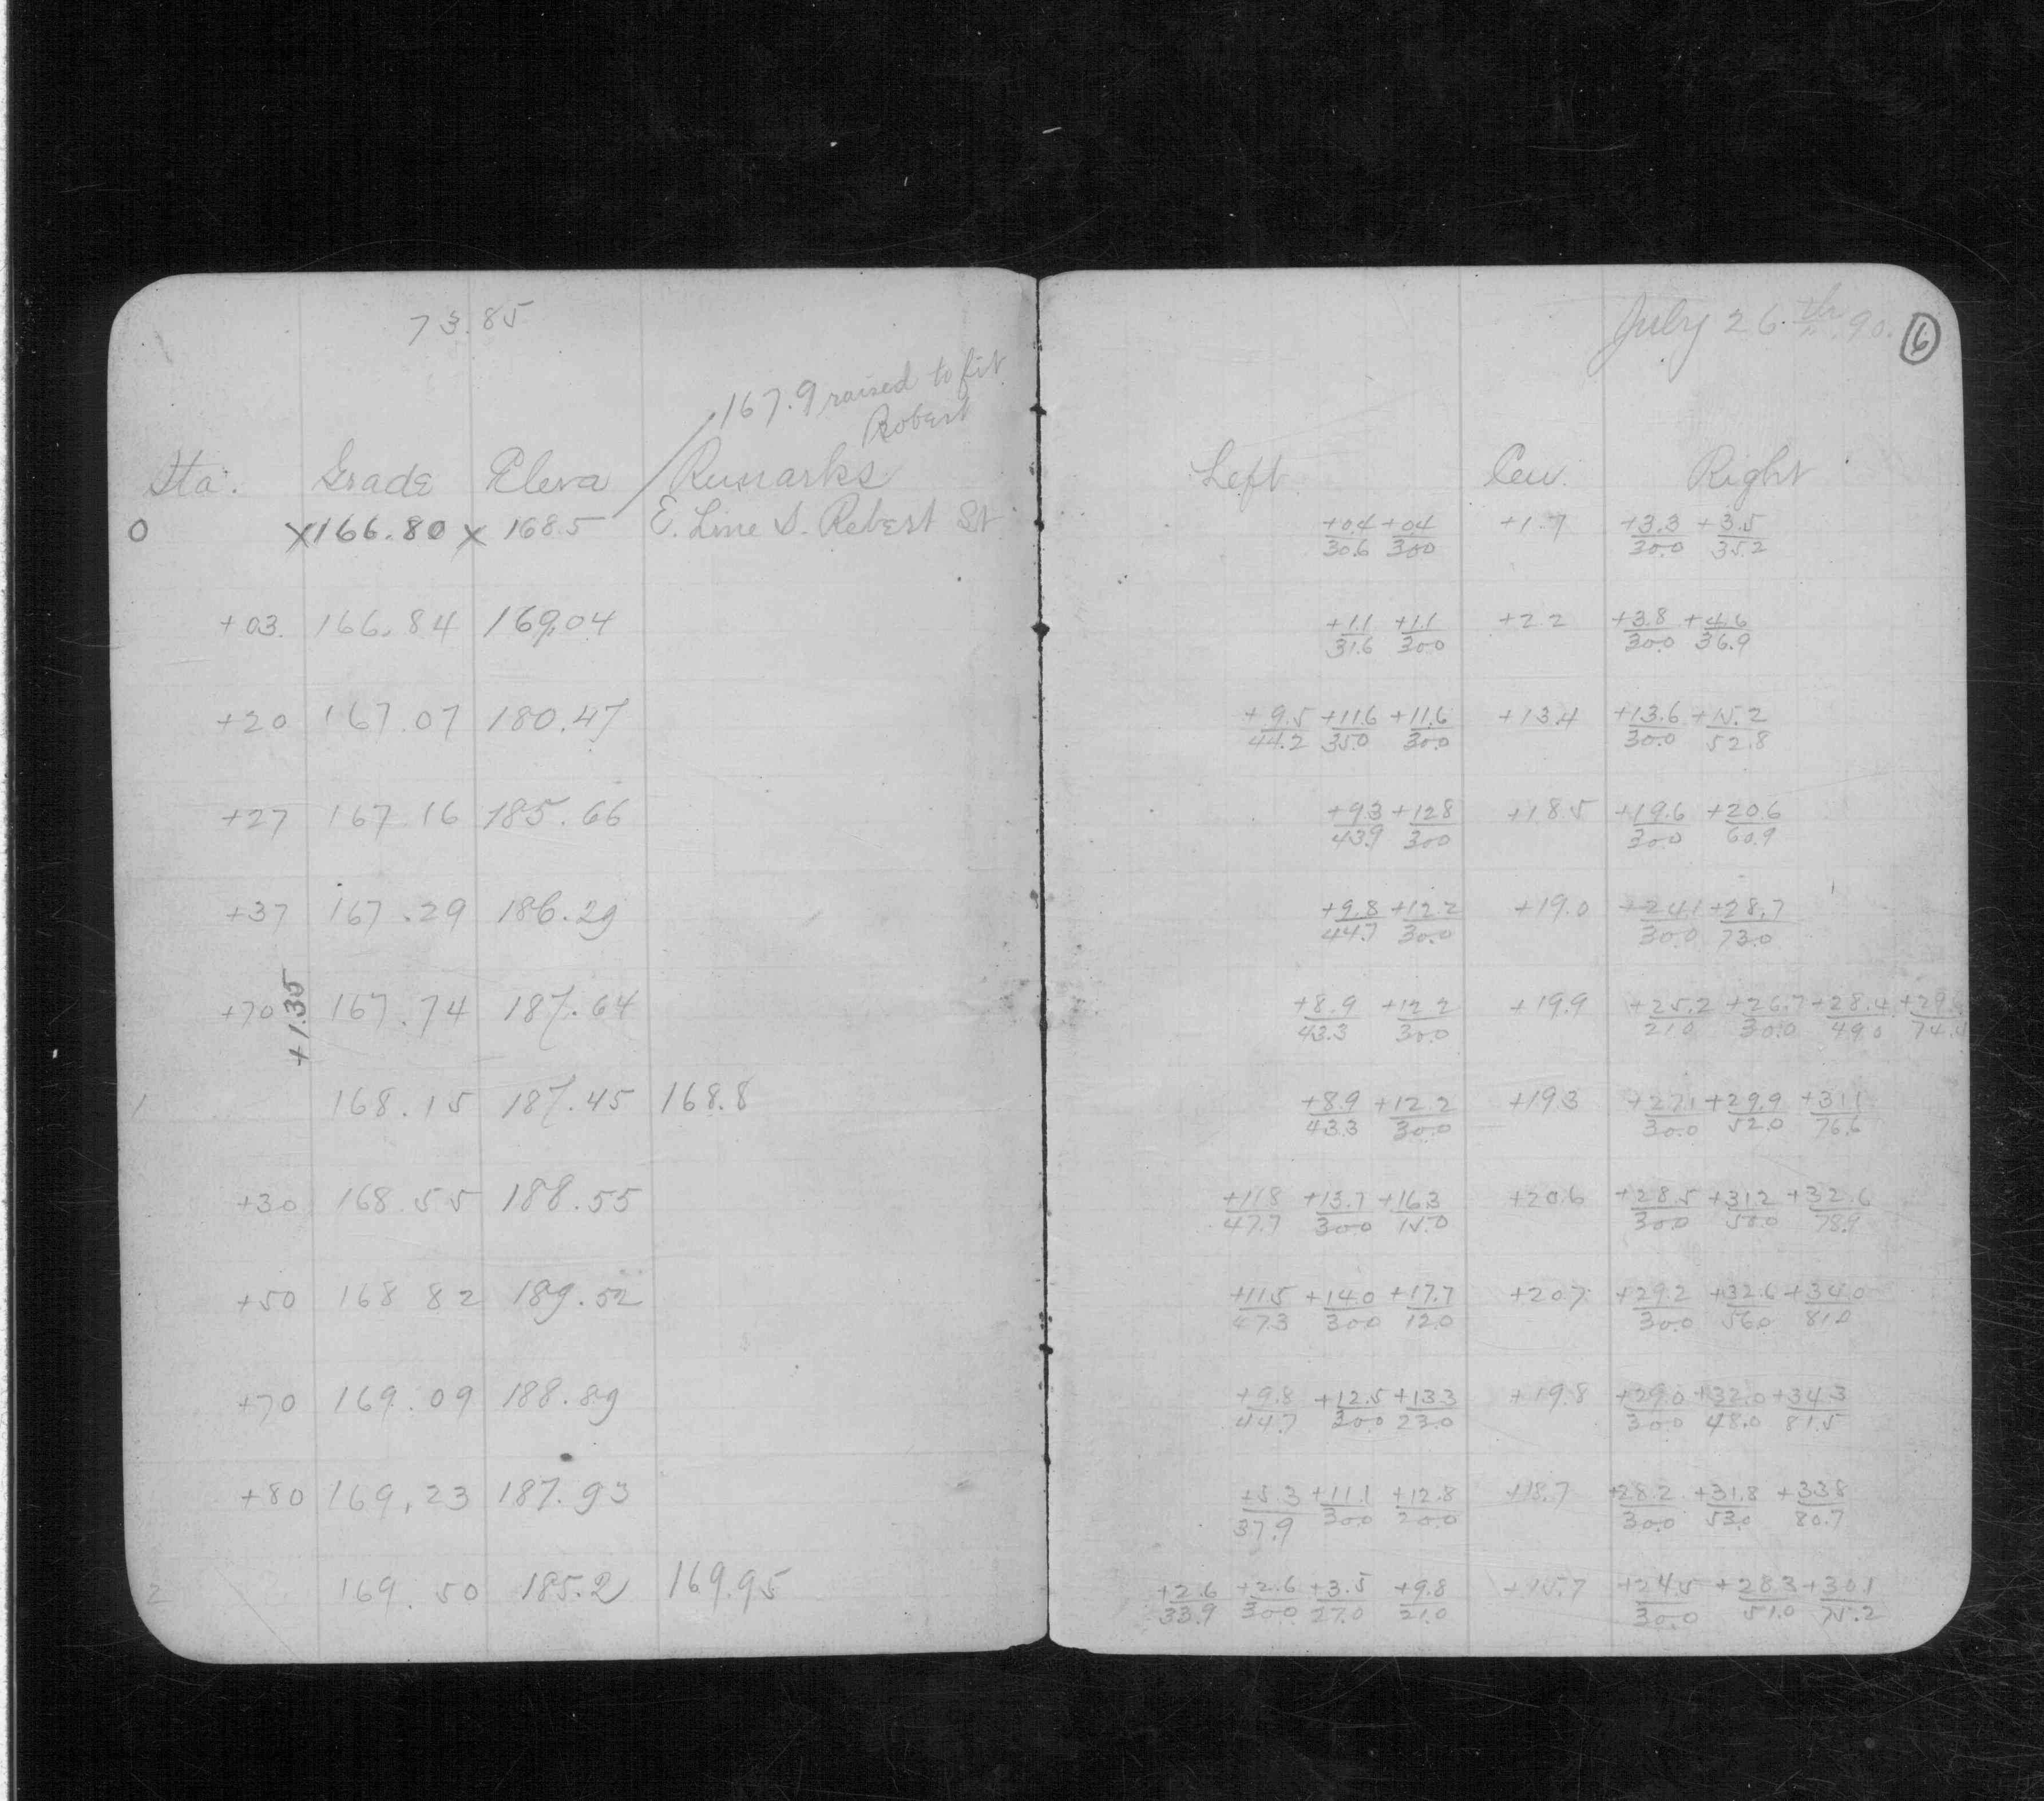 73.85
167.9 raised to fit
Robert
Sta. Grade Eleva Remarks
0 x166.80 x 168.5 E. Line S. Robert St
+03 166.84 169.04
+20 167.07 180.47
+27 167.16 185.66
+37 167.29 186.29
+70 167.74 187.64
+1.35
1 168.15 187.45 168.8
+30 168.55 188.55
+50 168 82 189.52
+70 169.09 188.89
+80 169.23 187.93
2 169.50 185.2 169.95
July 26th 90. 6
Left Cen. Right
+0.4 +0.4 +1.7 +3.3 +3.5
30.6 30.0 30.0 35.2
+1.1 +1.1 +2.2 +3.8 +4.6
31.6 30.0 30.0 36.9
+9.5 +11.6 +11.6 +13.4 +13.6 +15.2
44.2 35.0 30.0 30.0 52.8
+9.3 +12.8 +18.5 +19.6 +20.6
43.9 30.0 30.0 60.9
+9.8 +12.2 +19.0 +24.1 +28.7
44.7 30.0 30.0 73.0
+8.9 +12.2 +19.9 +25.2 +26.7 +28.4
43.3 30.0 21.0 30.0 49.0
+8.9 +12.2 +19.3 +27.1 +29.9 +31.1
43.3 30.0 30.0 52.0 76.6
+11.8 +13.7 +16.3 +20.6 +28.5 +31.2 +32.6
47.7 30.0 15.0 30.0 50.0 78.9
+11.5 +14.0 +17.7 +20.7 +29.2 +32.6 +34.0
47.3 30.0 12.0 30.0 56.0 81.0
+9.8 +12.5 +13.3 +19.8 +29.0 +32.0 +34.3
44.7 30.0 23.0 30.0 48.0 81.5
+5.3 +11.1 +12.8 +18.7 +28.2 +31.8 +33.8
37.9 30.0 20.0 30.0 53.0 80.7
+2.6 +2.6 +3.5 +9.8 +15.7 +24.5 +28.3 +30.1
33.9 30.0 27.0 21.0 30.0 51.0 75.2